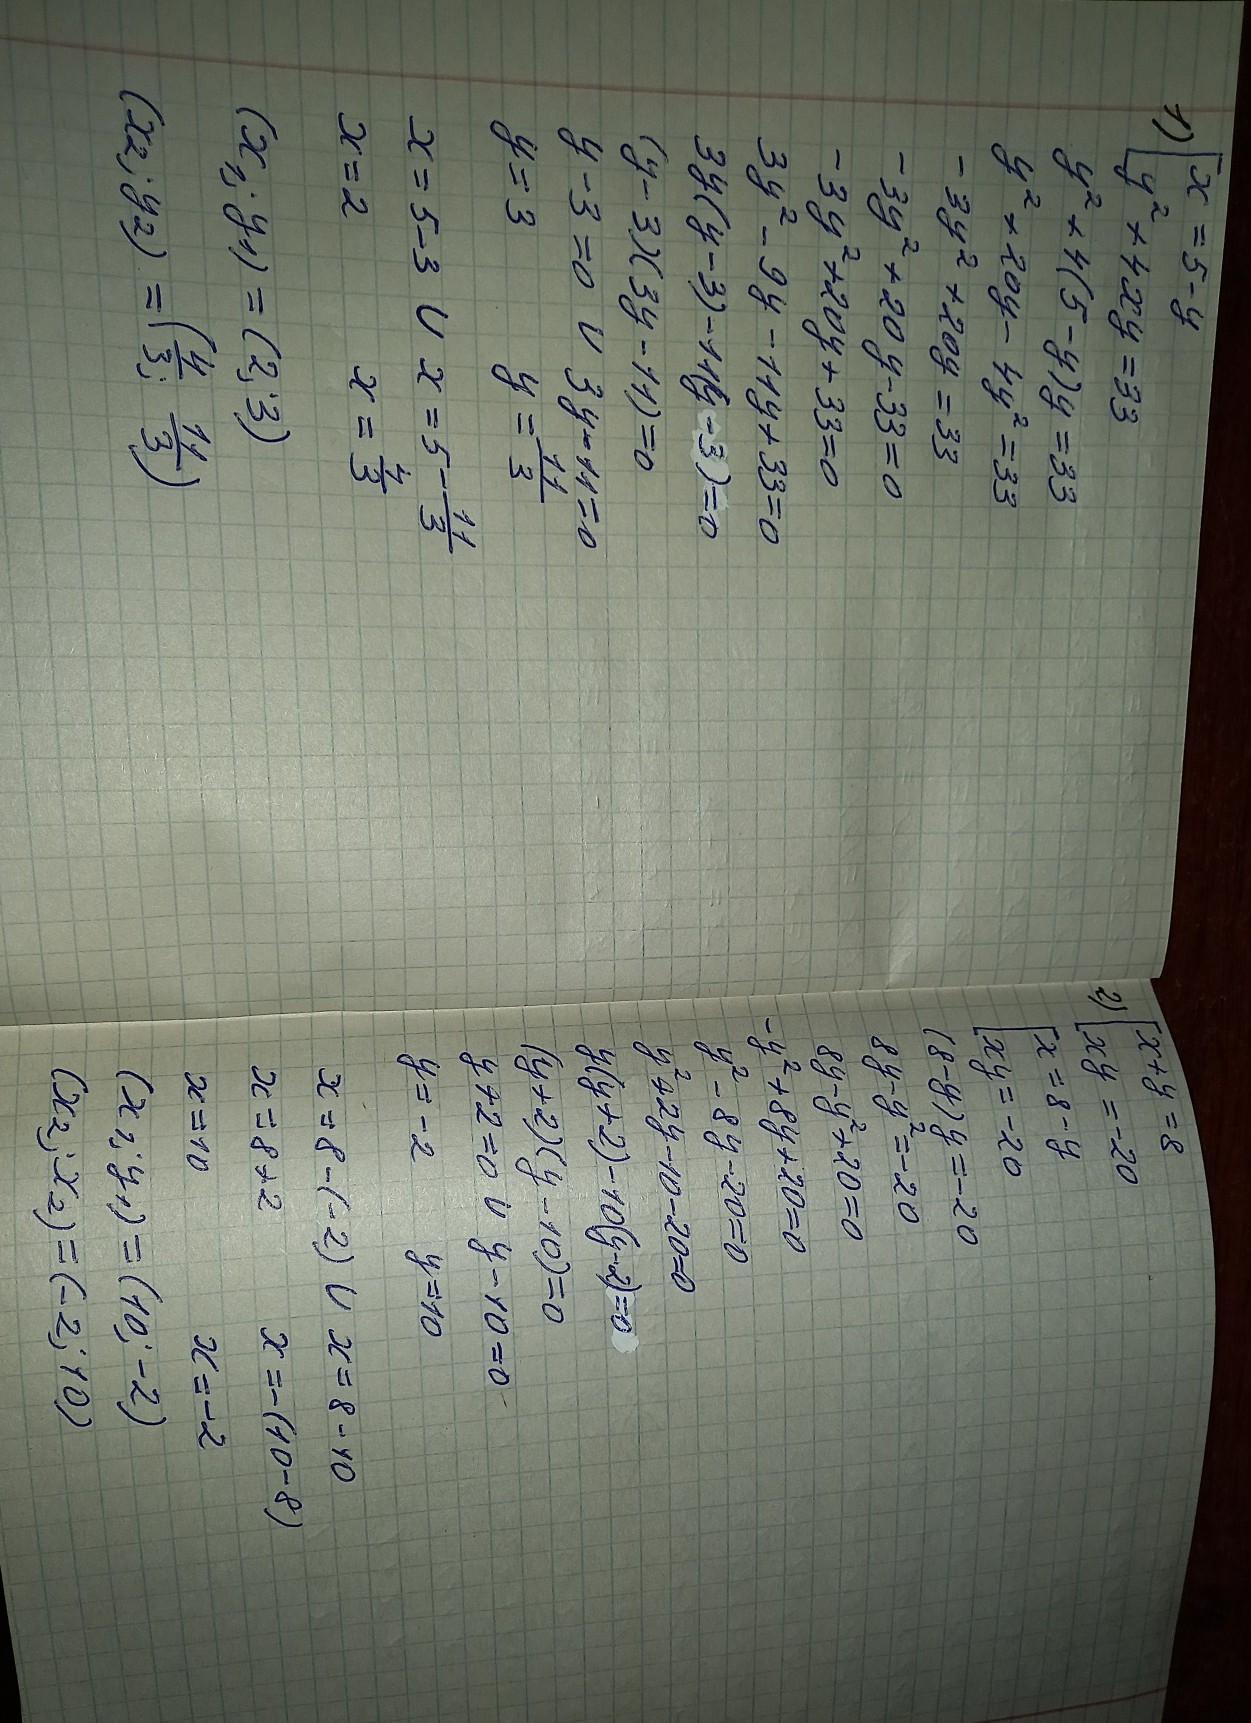 1) [x = 5 - y
[y² + 4xy = 33
y² + 4(5 - y)y = 33
y² + 20y - 4y² = 33
- 3y² + 20y = 33
- 3y² + 20y - 33 = 0
- 3y² + 20y + 33 = 0
3y² - 9y - 11y + 33 = 0
3y(y - 3) - 11(y - 3) = 0
(y - 3)(3y - 11) = 0
y - 3 = 0 ∪ 3y - 11 = 0
y = 3 y = 11/3
x = 5 - 3 ∪ x = 5 - 11/3
x = 2 x = 4/3
(x₁; y₁) = (2; 3)
(x₂; y₂) = (4/3; 11/3)
2) [x + y = 8
[xy = -20
[x = 8 - y
[xy = -20
(8 - y)y = -20
8y - y² = -20
8y - y² + 20 = 0
-y² + 8y + 20 = 0
y² - 8y - 20 = 0
y² + 2y - 10 - 20 = 0
y(y + 2) - 10(y - 2) = 0
(y + 2)(y - 10) = 0
y + 2 = 0 ∪ y - 10 = 0
y = -2 y = 10
x = 8 - (-2) ∪ x = 8 - 10
x = 8 + 2 x = -(10 - 8)
x = 10 x = -2
(x₁; y₁) = (10; -2)
(x₂; x₂) = (-2; 10)